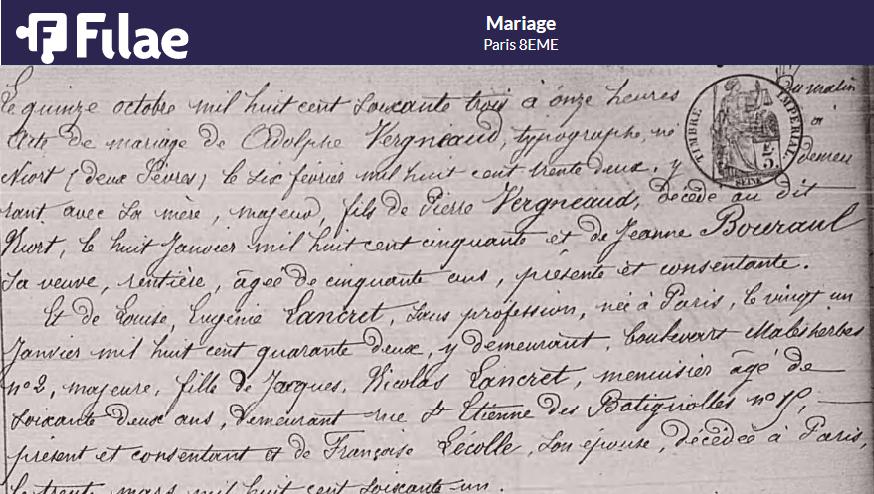 Filae
Mariage
Paris 8EME
Le quinze octobre mil huit cent soixante trois à onze heures du matin
Acte de mariage de Adolphe Vergneaud, typographe, né à
Niort (deux Sèvres) le six février mil huit cent trente deux, y demeu
rant avec sa mère, majeur, fils de Pierre Vergneaud, décédé au dit
Niort, le huit Janvier mil huit cent cinquante et de Jeanne Bouraul
sa veuve, rentière, âgée de cinquante ans, présente et consentante.
Et de Louise, Eugénie Lancret, sans profession, née à Paris, le vingt un
Janvier mil huit cent quarante deux, y demeurant, boulevart Malesherbes
nº 2, majeure, fille de Jacques, Nicolas Lancret, menuisier âgé de
soixante deux ans, demeurant rue St Etienne des Batignolles nº
présent et consentant et de Françoise Lécolle, son épouse, décédée à Paris,
le trente mars mil huit cent soixante un.
TIMBRE IMPERIAL
5
SEINE